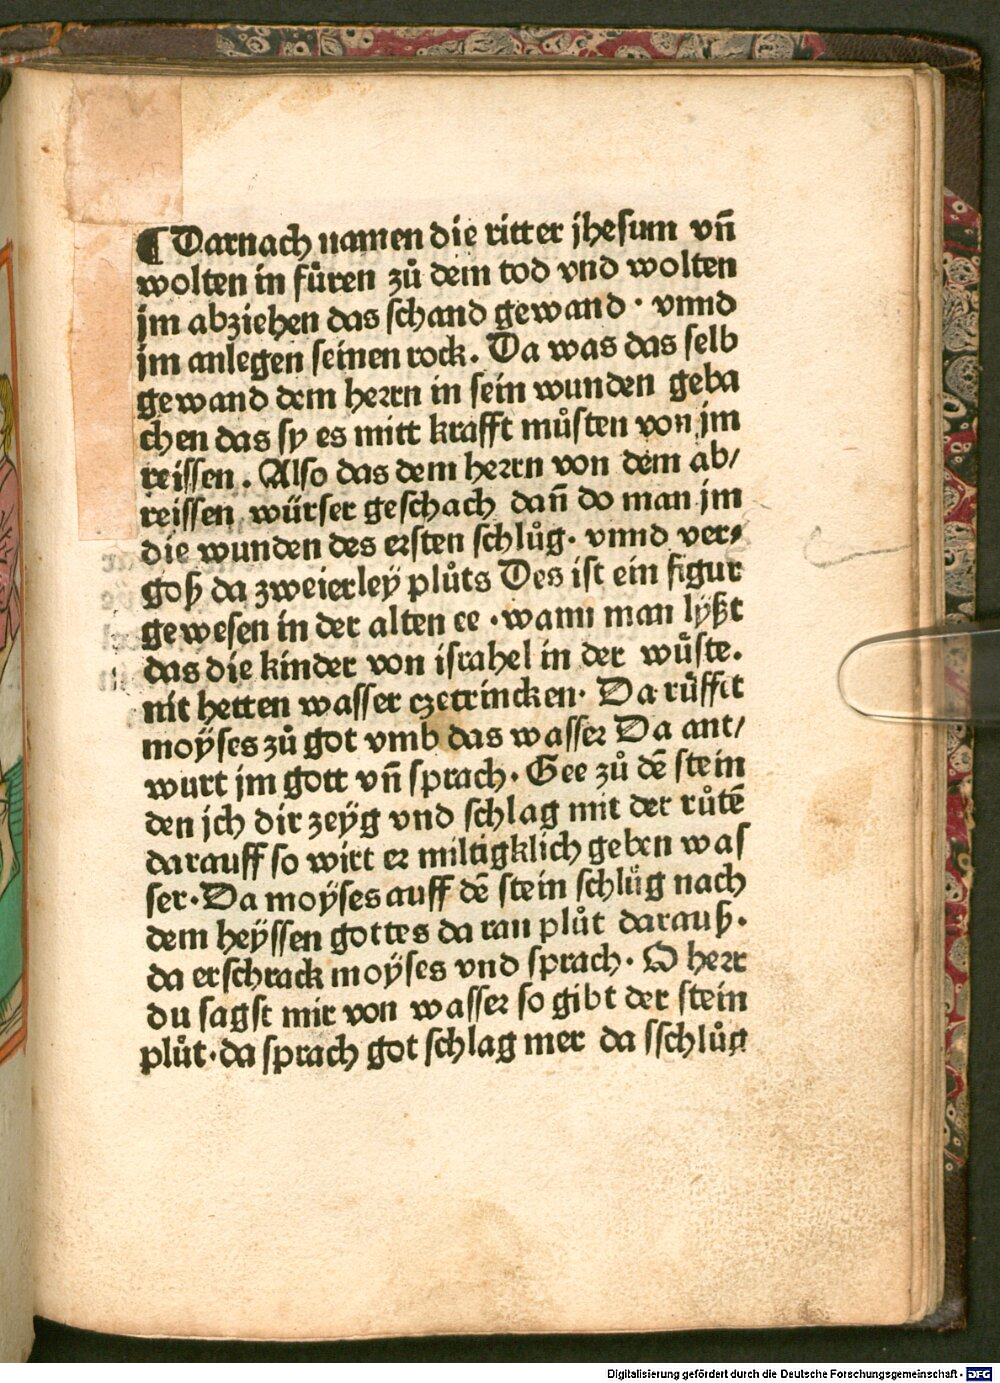 ¶ Darnach namen die ritter jhesum vn̄
wolten in fu̎ren zů dem tod vnd wolten
jm abziehen das schand gewand · vnnd
jm anlegen seinen rock. Da was das selb
gewand dem herꝛn in sein wunden geba
chen das sy es mitt krafft můsten von jm
reissen. Also das dem herꝛn von dem ab/
reissen würser geschach dan̄ do man jm
die wunden des eꝛsten schlůg. vnnd ver⸗
goß da zweierleÿ plůts Des ist ein figur
gewesen in der alten ee · wann man lyßt
das die kinder von israhel in der wůste.
nit hetten wasser czetrincken. Da růffet
moÿses zů got vmb das wasseꝛ Da ant/
wurt jm gott vn̄ sprach. Gee zů dē stein
den jch dir zeÿg vnd schlag mit der růtē
darauff so wirt eꝛ miltigklich geben was
ser. Da moÿses auff dē stein schlůg nach
dem heÿssen gottes da ran plůt darauß.
da erschrack moÿses vnd sprach. O herꝛ
du sagst mir von wasseꝛ so gibt der stein
plůt. da sprach got schlag mer da sschlůg
Digitalisierung gefördert durch die Deutsche Forschungsgemeinschaft - DFG